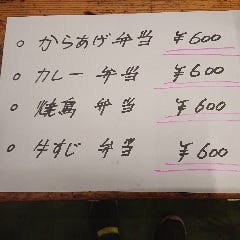 ○ からあげ弁当 ¥600
○ カレー弁当 ¥600
○ 焼鳥弁当 ¥600
○ 牛すじ弁当 ¥600